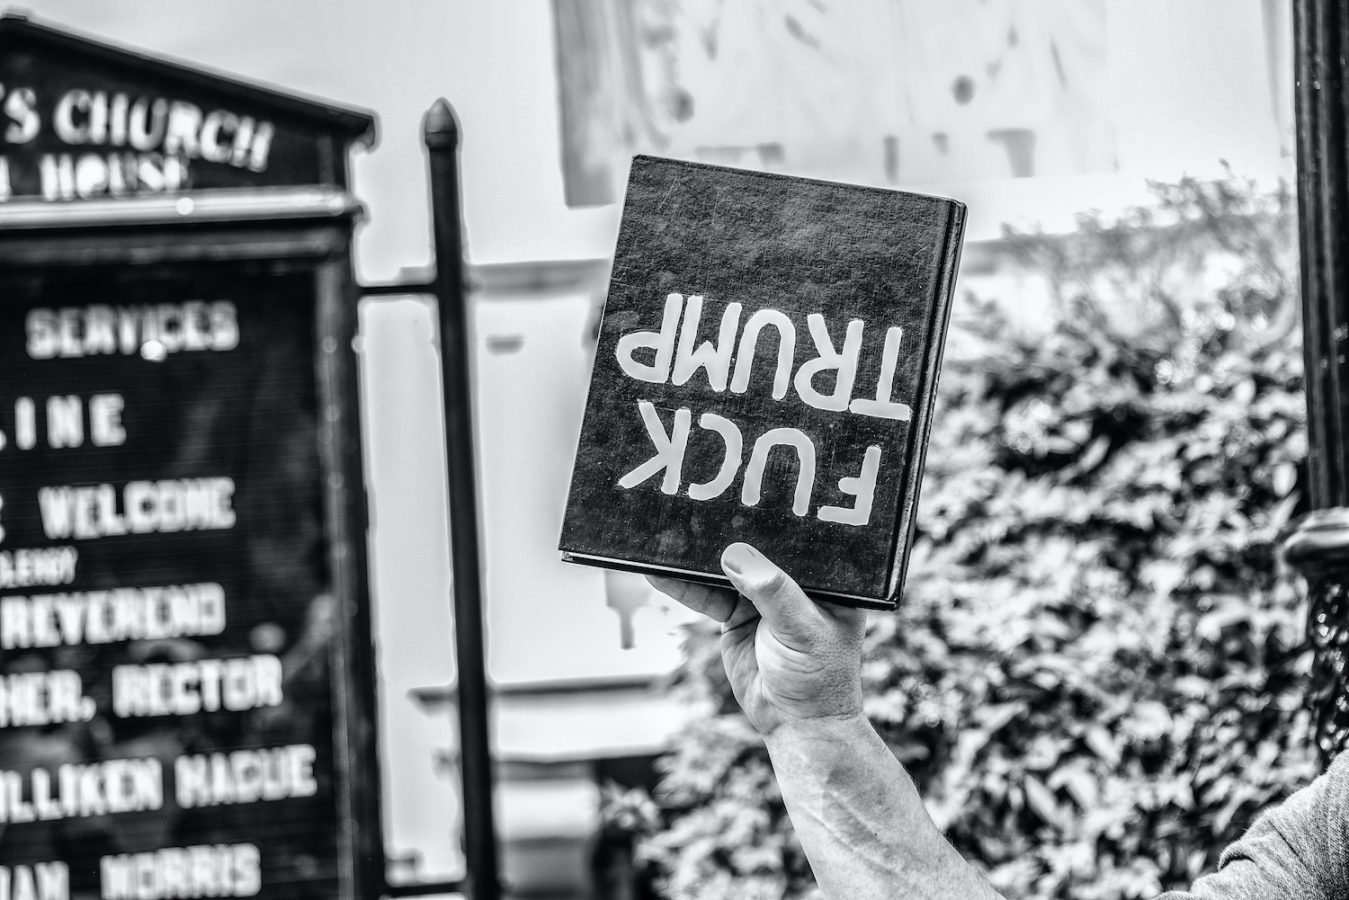 'S CHURCH
HOUSE
SERVICES
LINE
WELCOME
CLERGY
REVEREND
HER, RECTOR
LLIKEN HAGUE
MORRIS
FUCK
TRUMP